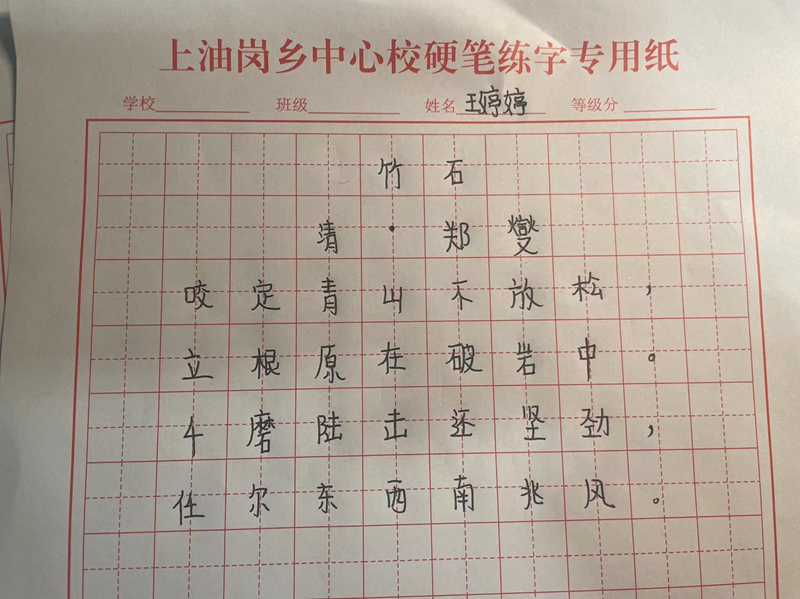 上油岗乡中心校硬笔练字专用纸
学校 班级 姓名 王婷婷 等级分
竹石
清·郑燮
咬定青山不放松，
立根原在破岩中。
千磨陆击还坚劲，
任尔东西南兆风。